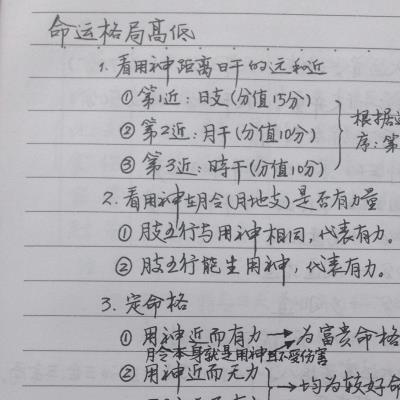 命运格局高低
1. 看用神距离日干的远和近
① 第1近：日支(分值15分)
② 第2近：月干(分值10分)
③ 第3近：時干(分值10分)
根据
序：第
2. 看用神在月令(月地支)是否有力量
① 月支五行与用神相同，代表有力。
② 月支五行能生用神，代表有力。
3. 定命格
① 用神近而有力→为富贵命格
月令本身就是用神且不受伤害
② 用神近而无力
→均为较好命